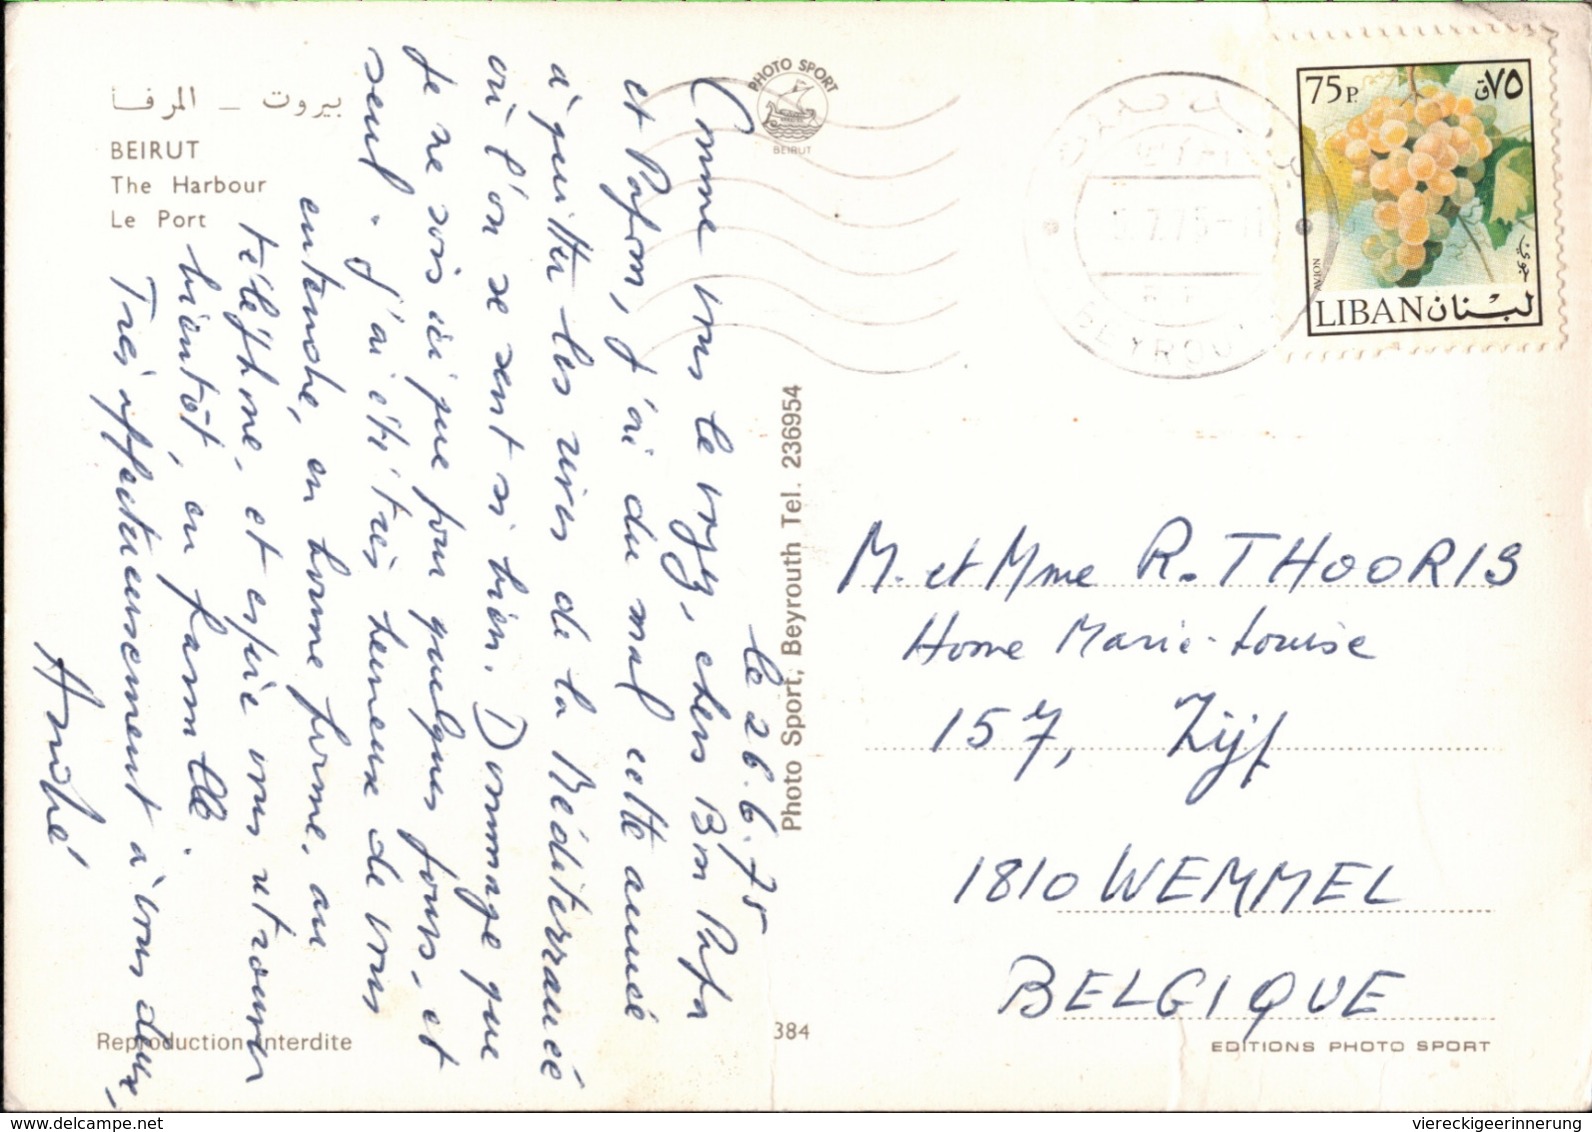 بيروت – المرفأ
BEIRUT
The Harbour
Le Port
PHOTO SPORT
BEIRUT
le 26.6.75
Comme vous le voyez, chers Bon Papa
et Bonne, j'ai du mal cette année
à quitter les rives de la Méditerranée
où l'on se sent si bien. Dommage que
je ne sois ici que pour quelques jours, et
seul. J'ai été très heureux de vous
entendre, en bonne forme, au
téléphone, et espère vous retrouver
bientôt, en famille.
Très affectueusement à vous deux,
André
Reproduction interdite
Photo Sport, Beyrouth Tel. 236954
384
75 P.
٧٥ ق
AVION
جوي
LIBAN لبنان
BEYROUTH
M. et Mme R. THOORIS
Home Marie-Louise
157, Zijp
1810 WEMMEL
BELGIQUE
EDITIONS PHOTO SPORT
viereckigeerinnerung